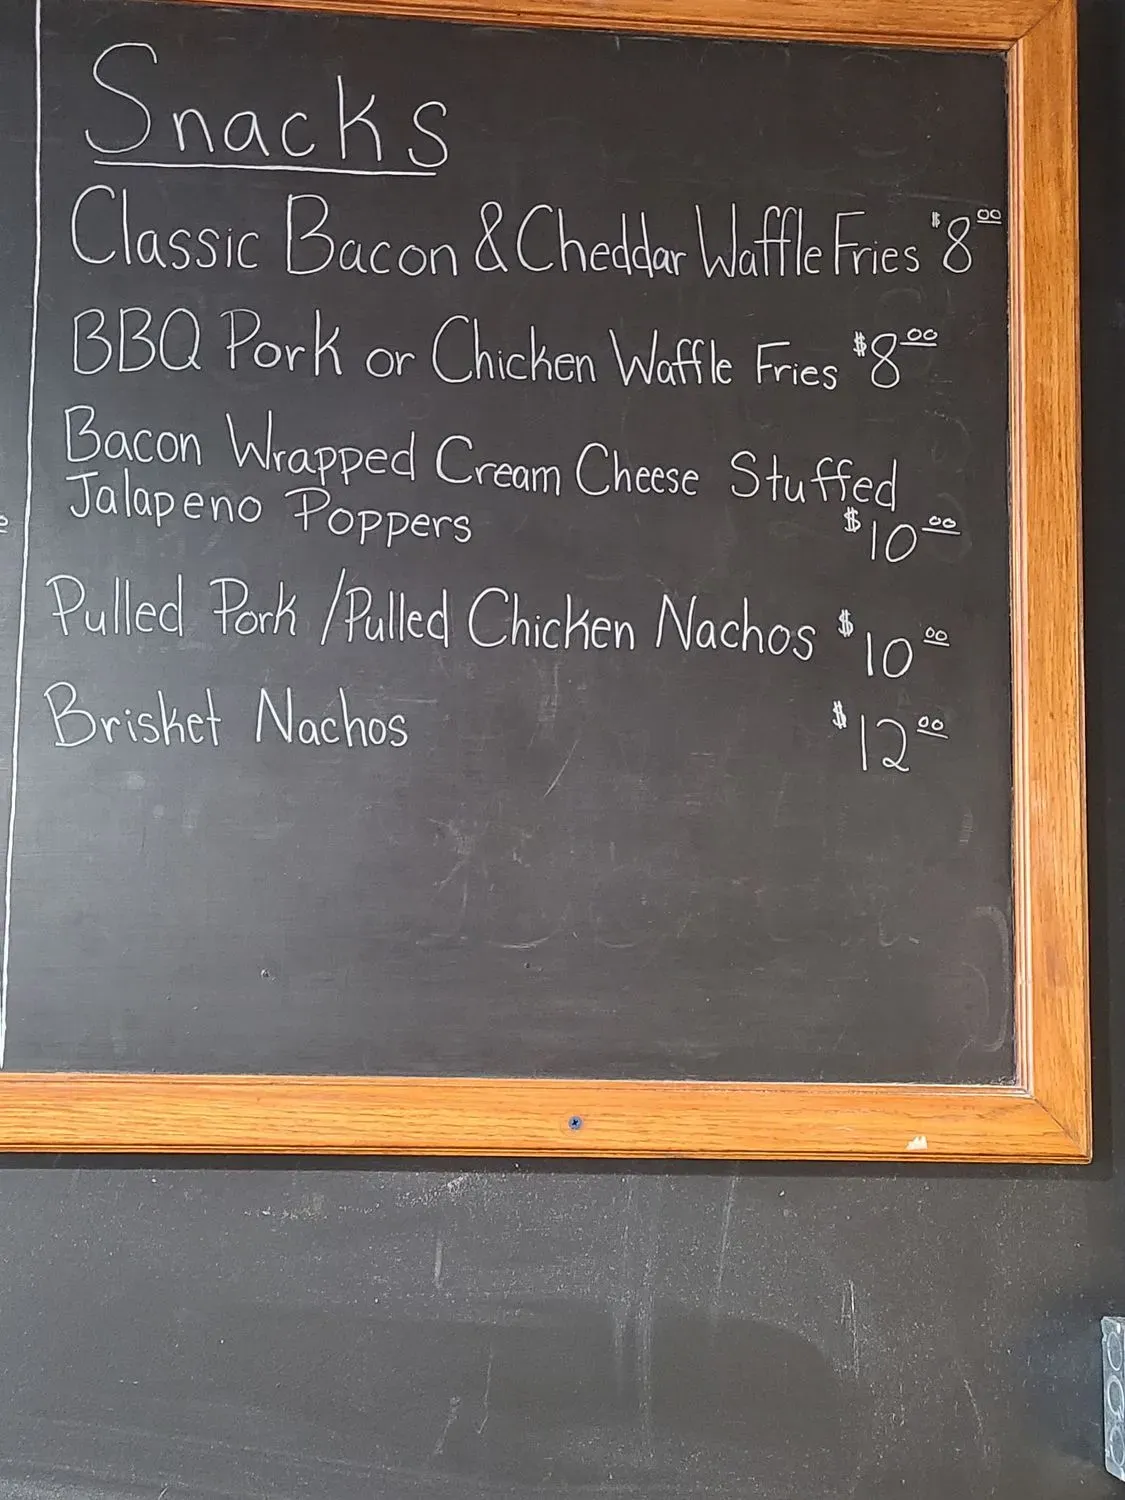 Snacks
Classic Bacon & Cheddar Waffle Fries $8.00
BBQ Pork or Chicken Waffle Fries $8.00
Bacon Wrapped Cream Cheese Stuffed
Jalapeno Poppers $10.00
Pulled Pork / Pulled Chicken Nachos $10.00
Brisket Nachos $12.00